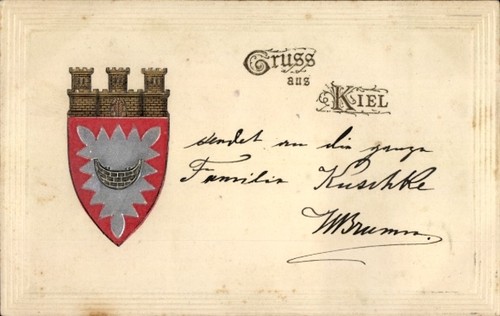 Gruss
aus
Kiel
sendet an die ganze
Familie Kuschke